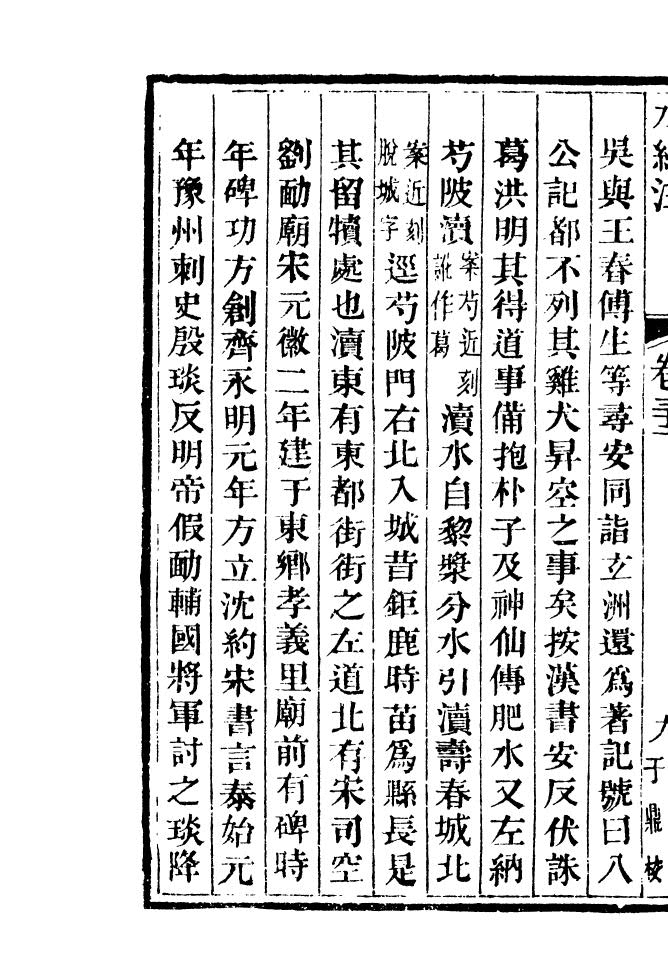 水經注 卷三十二 九 于鼎校
吳與王春傅生等尋安同詣𤣥洲還爲著記號曰八
公記都不列其雞犬昇空之事矣按漢書安反伏誅
葛洪明其得道事備抱朴子及神仙傳肥水又左納
芍陂瀆案芍近刻訛作葛瀆水自黎漿分水引瀆壽春城北
案近刻脫城字逕芍陂門右北入城昔鉅鹿時苗爲縣長是
其留犢處也瀆東有東都街街之左道北有宋司空
劉勔廟宋元徽二年建于東鄉孝義里廟前有碑時
年碑功方創齊永明元年方立沈約宋書言泰始元
年豫州刺史殷琰反明帝假勔輔國將軍討之琰降